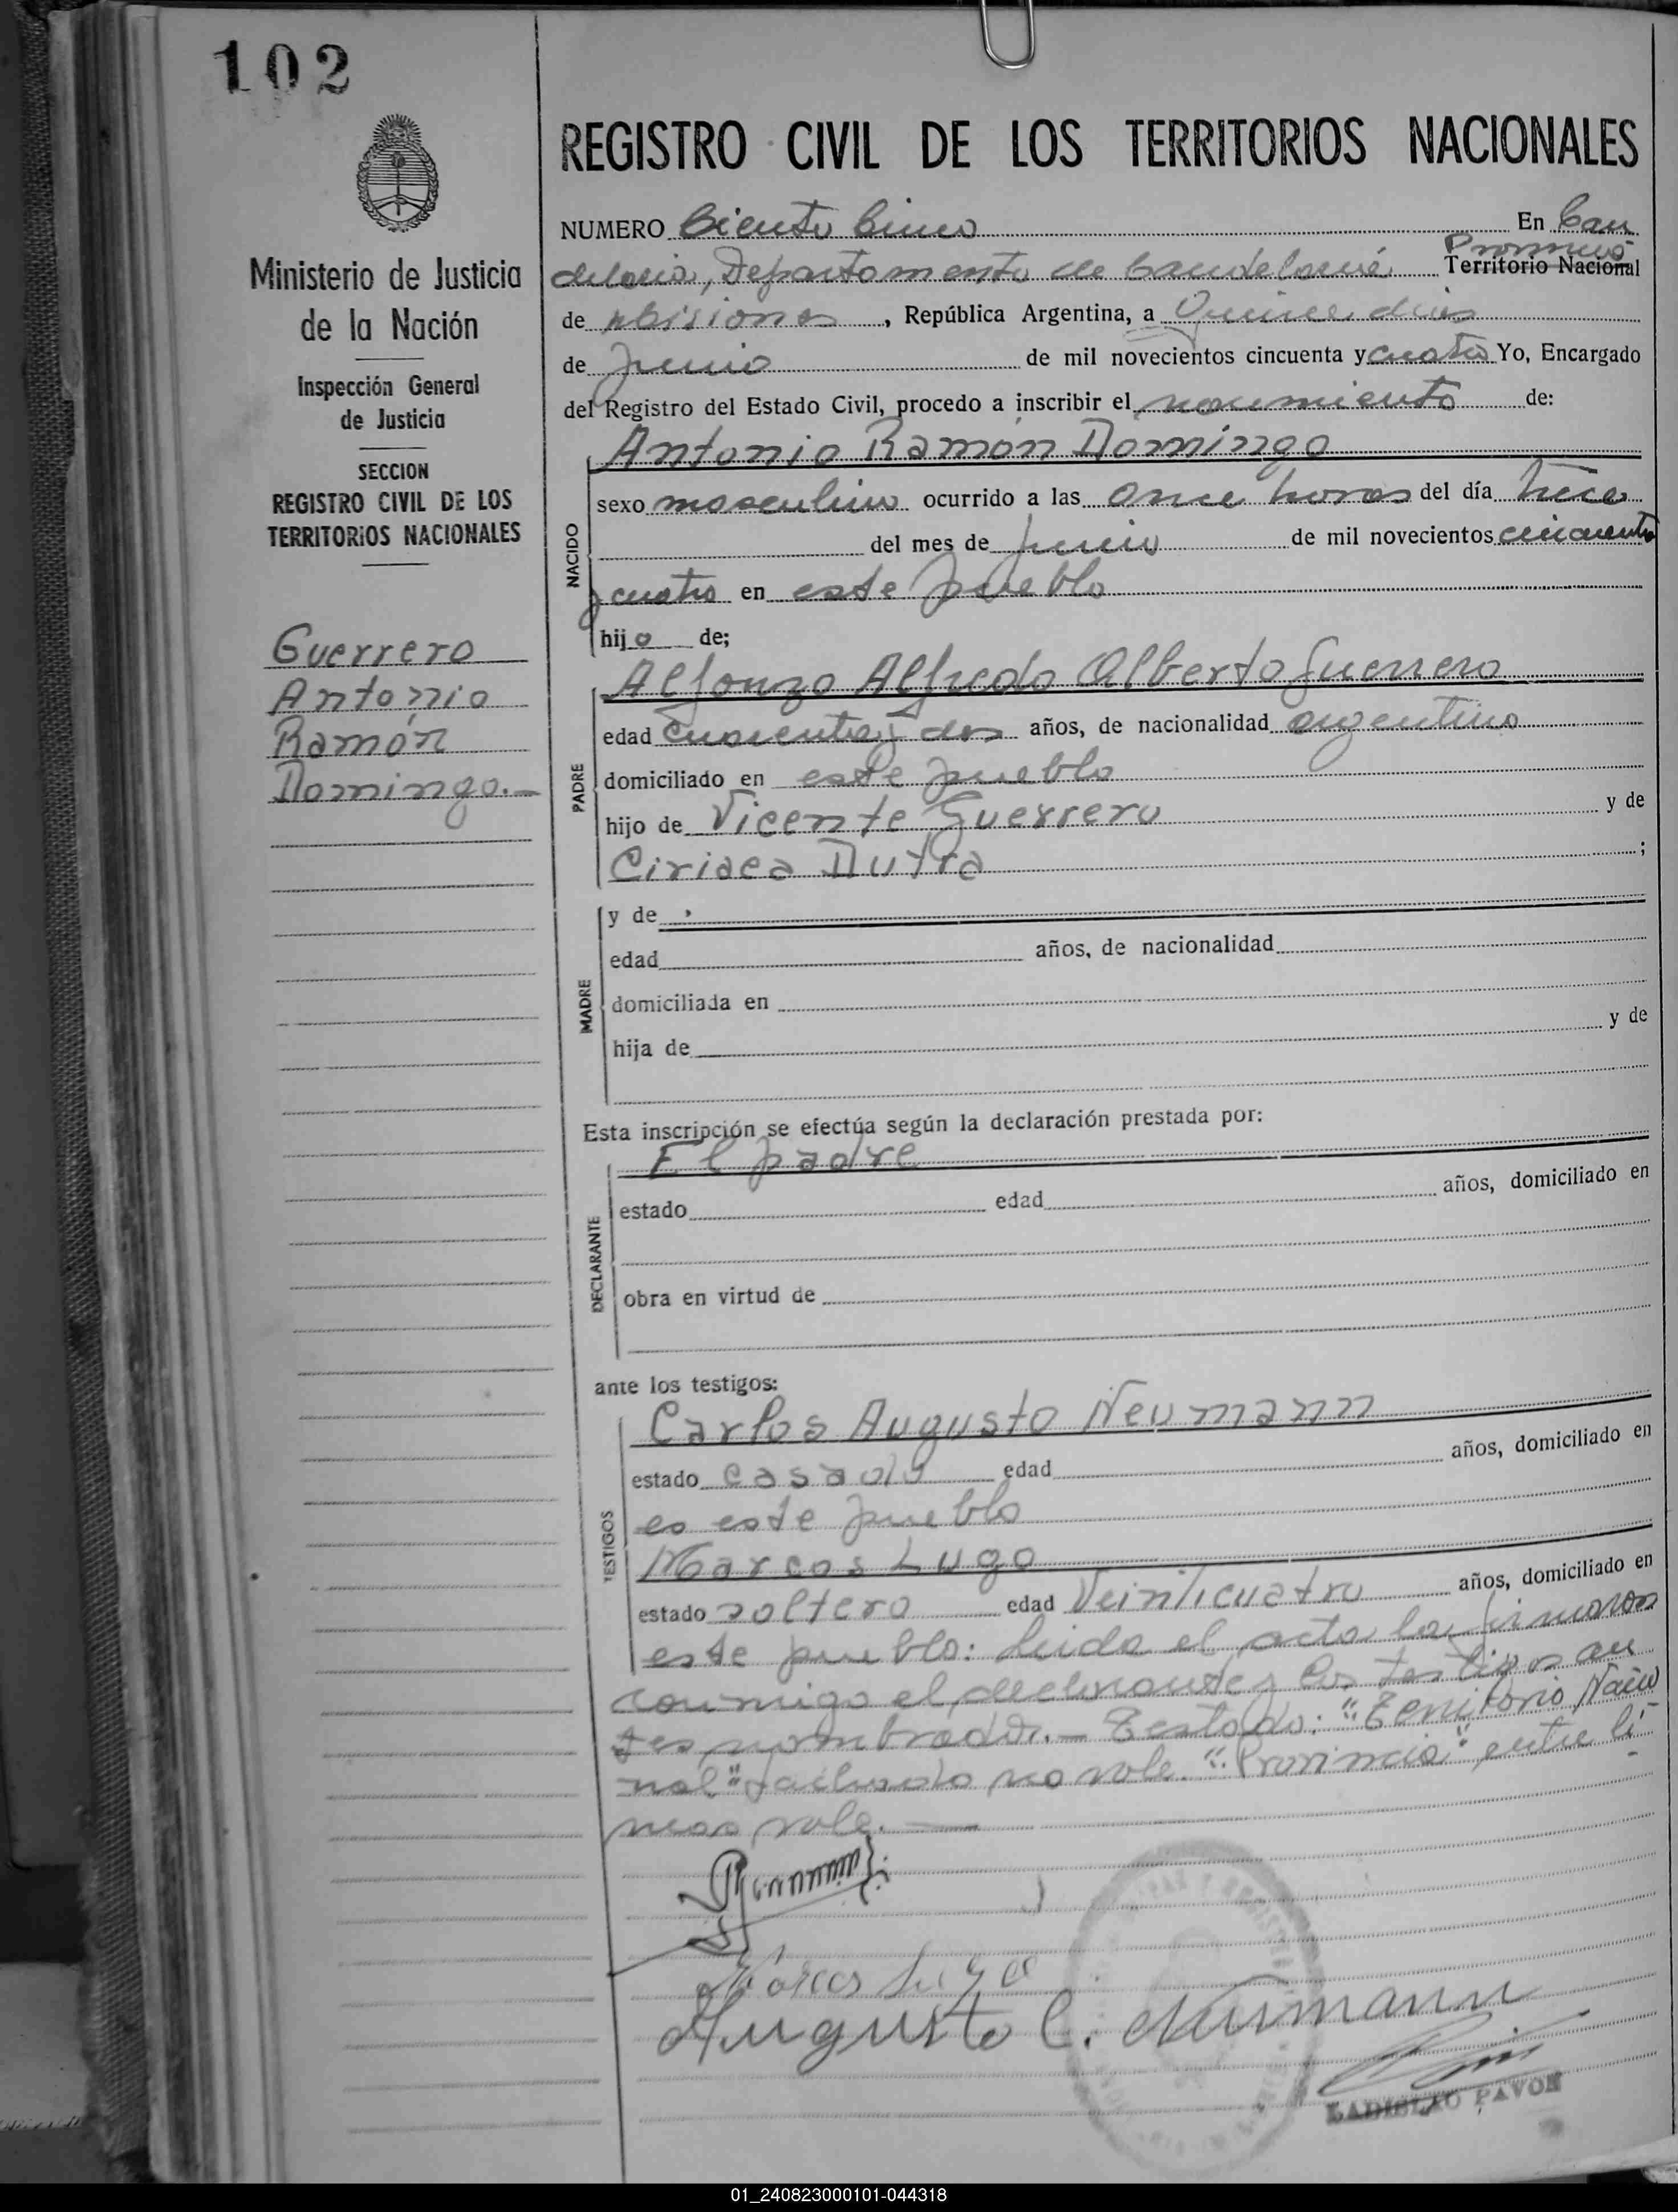 102
Ministerio de Justicia
de la Nación
Inspección General
de Justicia
SECCION
REGISTRO CIVIL DE LOS
TERRITORIOS NACIONALES
Guerrero
Antonio
Ramón
Domingo.—
REGISTRO CIVIL DE LOS TERRITORIOS NACIONALES
NUMERO Ciento Cinco En Can
Provincia
delaria, Departamento de Candelaria Territorio Nacional
de Misiones, República Argentina, a Quince dias
de Junio de mil novecientos cincuenta y cuatro Yo, Encargado
del Registro del Estado Civil, procedo a inscribir el nacimiento de:
Antonio Ramón Domingo
NACIDO
sexo masculino ocurrido a las once horas del día trece
del mes de Junio de mil novecientos cincuenta
y cuatro en este pueblo
hijo de;
Alfonzo Alfredo Alberto Guerrero
PADRE
edad cuarenta y dos años, de nacionalidad argentino
domiciliado en este pueblo
hijo de Vicente Guerrero y de
Ciriaca Dutra ;
MADRE
y de
edad años, de nacionalidad
domiciliada en
hija de y de
Esta inscripción se efectúa según la declaración prestada por:
El padre
DECLARANTE
estado edad años, domiciliado en
obra en virtud de
ante los testigos:
Carlos Augusto Neumann
TESTIGOS
estado casado edad años, domiciliado en
es este pueblo
Marcos Lugo
estado soltero edad Veinticuatro años, domiciliado en
este pueblo: leida el acta la firmaron
conmigo el declarante y los testigos an
tes nombrados.— Testado: "Territorio Nacio
nal" tachado no vale. "Provincia" entre li-
neas vale.—
Marcos Lugo
Augusto C. Neumann
LADISLAO PAVON
01_240823000101-044318